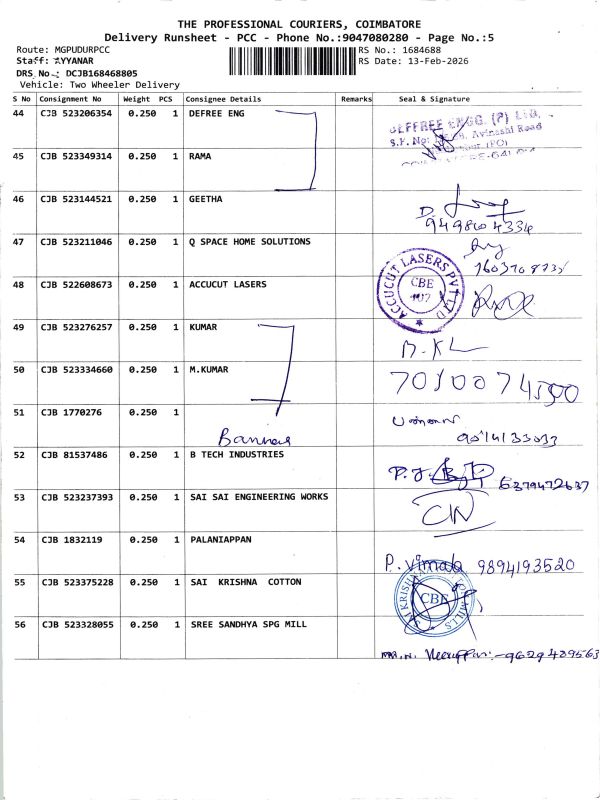 THE PROFESSIONAL COURIERS, COIMBATORE
Delivery Runsheet - PCC - Phone No.:9047080280 - Page No.:5
Route: MGPUDURPCC RS No.: 1684688
Staff: AYYANAR RS Date: 13-Feb-2026
DRS No.: DCJB168468805
Vehicle: Two Wheeler Delivery
S No Consignment No Weight PCS Consignee Details Remarks Seal & Signature
44 CJB 523206354 0.250 1 DEFREE ENG
DEFFREE ENGG. (P) LTD.
S.F. No: Avinashi Road
45 CJB 523349314 0.250 1 RAMA
46 CJB 523144521 0.250 1 GEETHA
47 CJB 523211046 0.250 1 Q SPACE HOME SOLUTIONS
48 CJB 522608673 0.250 1 ACCUCUT LASERS
ACCUCUT LASERS PVT LTD
CBE
49 CJB 523276257 0.250 1 KUMAR
50 CJB 523334660 0.250 1 M.KUMAR
51 CJB 1770276 0.250 1
52 CJB 81537486 0.250 1 B TECH INDUSTRIES
6379472637
53 CJB 523237393 0.250 1 SAI SAI ENGINEERING WORKS
54 CJB 1832119 0.250 1 PALANIAPPAN
P. Vimala 9894193520
55 CJB 523375228 0.250 1 SAI KRISHNA COTTON
CBE
56 CJB 523328055 0.250 1 SREE SANDHYA SPG MILL
9629489563